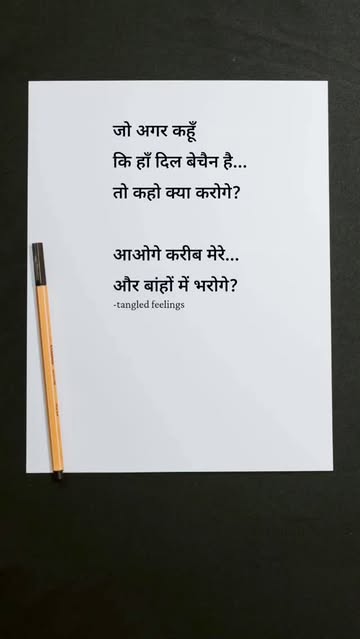 जो अगर कहूँ
कि हाँ दिल बेचैन है...
तो कहो क्या करोगे?
आओगे करीब मेरे...
और बांहों में भरोगे?
-tangled feelings